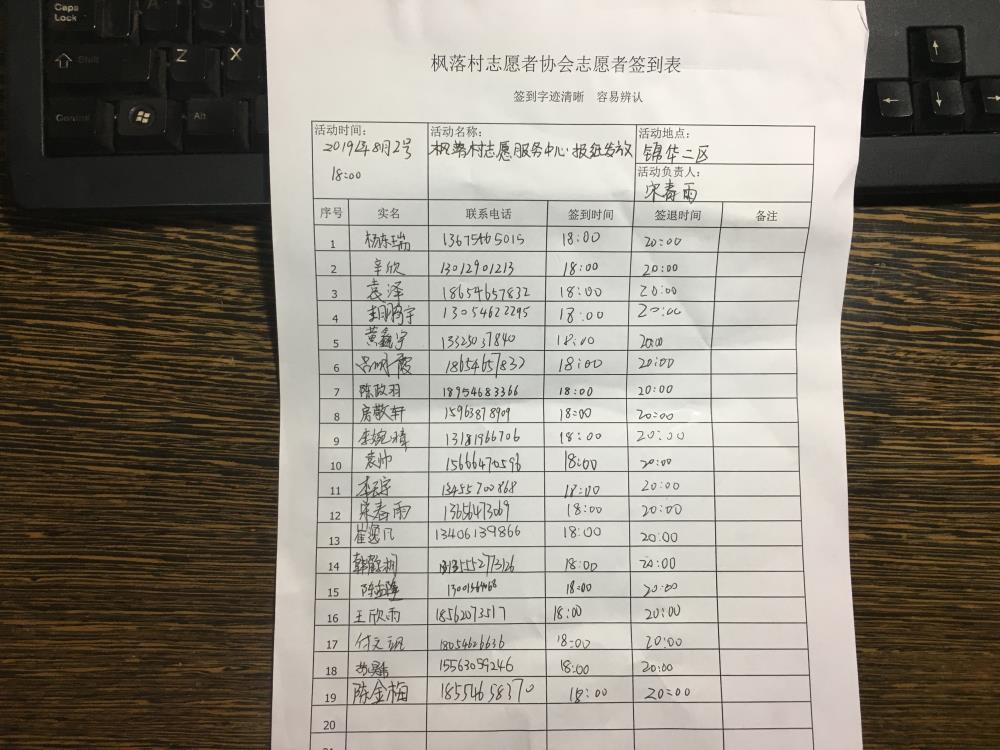 Caps Lock
Shift
Z
X
Control
Alt
枫落村志愿者协会志愿者签到表
签到字迹清晰 容易辨认
活动时间： 活动名称： 活动地点：
2019年8月2号 枫落村志愿服务中心·报纸发放 锦华二区
18:00 活动负责人：
宋春雨
序号 实名 联系电话 签到时间 签退时间 备注
1 杨东瑞 13675465015 18:00 20:00
2 辛欣 13012901213 18:00 20:00
3 袁泽 18654657832 18:00 20:00
4 胡腾宇 13054622295 18:00 20:00
5 黄鑫宇 13325037840 18:00 20:00
6 吕明霞 18654657832 18:00 20:00
7 陈政羽 18954683366 18:00 20:00
8 房敬轩 15963878909 18:00 20:00
9 李婉晴 13181966706 18:00 20:00
10 袁帅 15666470596 18:00 20:00
11 李宸宇 13455700868 18:00 20:00
12 宋春雨 13656473069 18:00 20:00
13 13406139866 18:00 20:00
14 18:00 20:00
15 18:00 20:00
16 王欣雨 18562073517 18:00 20:00
17 18054626636 18:00 20:00
18 15563059246 18:00 20:00
19 陈金梅 18554658370 18:00 20:00
20